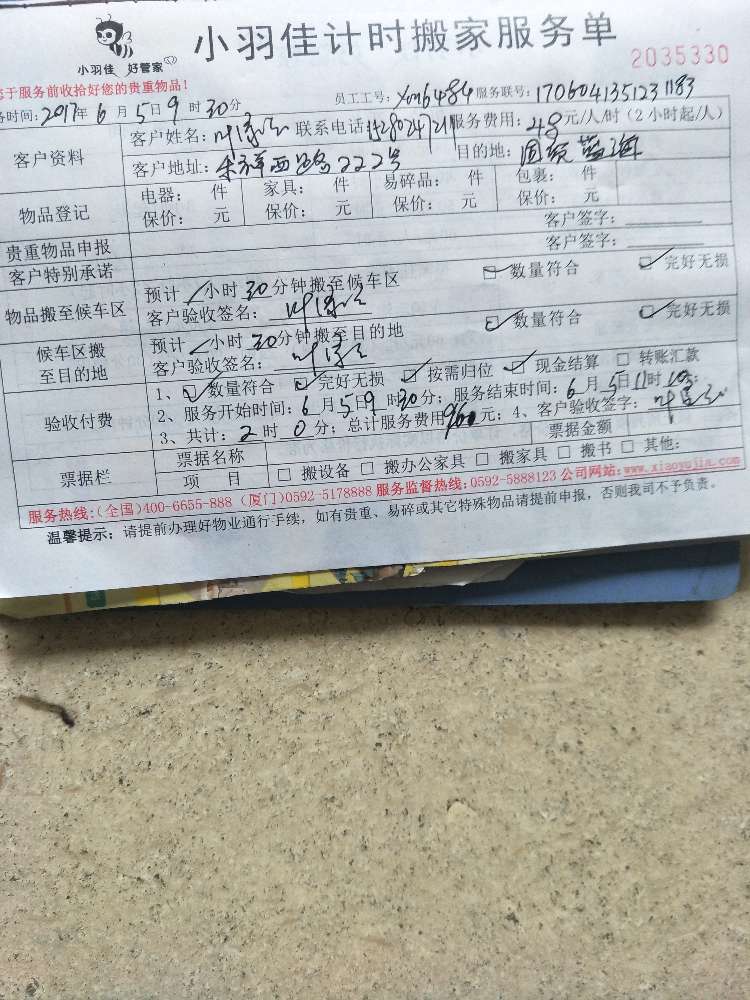 小羽佳 好管家
小羽佳计时搬家服务单
2035330
于服务前收拾好您的贵重物品!
时间: 2017年 6 月 5 日 9 时 30分 员工工号: Xm6484 服务联号: 1706041351231183
客户资料
客户姓名: 叶 联系电话: 服务费用: 48元/人/时 (2小时起/人)
客户地址: 祥西路222号 目的地: 国贸蓝海
物品登记
电器: 件 家具: 件 易碎品: 件 包裹: 件
保价: 元 保价: 元 保价: 元 保价: 元
贵重物品申报 客户签字:
客户特别承诺 客户签字:
物品搬至候车区
预计 小时 30分钟搬至候车区 数量符合 完好无损
客户验收签名: 叶
候车区搬至目的地
预计 小时 30分钟搬至目的地 数量符合 完好无损
客户验收签名: 叶
验收付费
1、数量符合 完好无损 按需归位 现金结算 转账汇款
2、服务开始时间: 6月5日9时30分; 服务结束时间: 6月5日11时10分;
3、共计: 2 时 0 分; 总计服务费用960元; 4、客户验收签字: 叶
票据栏
票据名称 票据金额
项 目 搬设备 搬办公家具 搬家具 搬书 其他:
服务热线:(全国)400-6655-888 (厦门)0592-5178888 服务监督热线: 0592-5888123 公司网站: www.xiaoyujia.com
温馨提示: 请提前办理好物业通行手续, 如有贵重、易碎或其它特殊物品请提前申报, 否则我司不予负责。